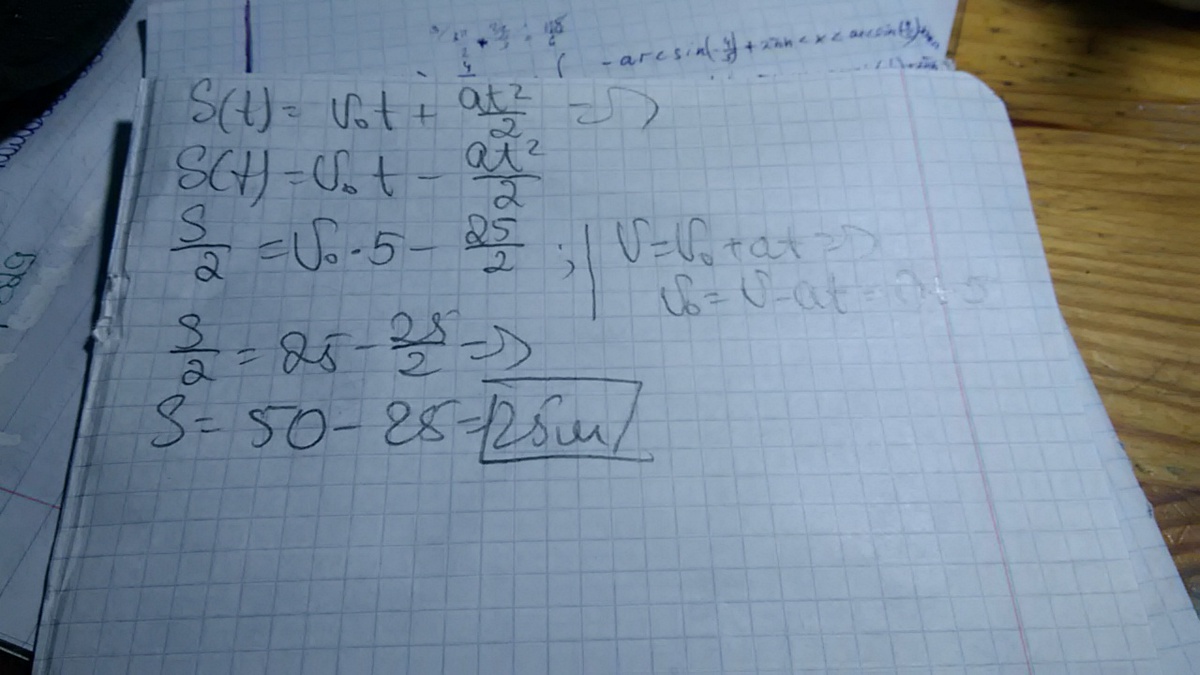 - arcsin(-
S(t) = V₀t + at²/2 =>
S(t) = V₀t - at²/2
S/2 = V₀·5 - 25/2 ; | V = V₀ + at =>
V₀ = V - at =
S/2 = 25 - 25/2 =>
S = 50 - 25 = 25м